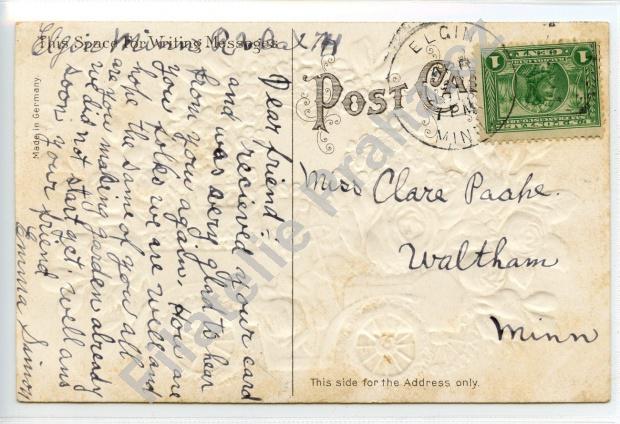 Elgin Minn R 2 Box 74
This Space For Writing Messages
Dear friend:
and recieved your card
from you again. How are
was very glad to hear
you folks we are well and
hope the same of you all
are you making garden already
we did not start yet. well ans
soon your friend
Emma
Made in Germany
POST CA
ELGIN
7 PM
MINN
1 CENT 1
Miss Clare Paape.
Waltham
Minn
This side for the Address only.
Filatelie Praha.cz